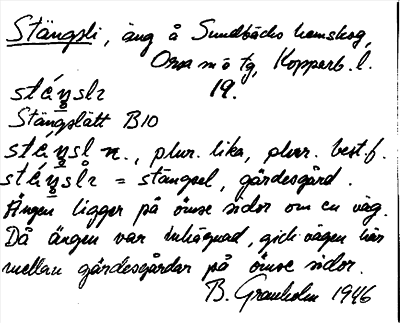 Stängsli, äng å Sundbäcks hemskog,
Orsa sn o tg, Kopparb. l.
stéŋslɪ 19.
Stängslätt B10
stéŋsl n., plur. lika, plur. best. f.
stéŋslɪ = stängsel, gärdesgård.
Ängen ligger på ömse sidor om en väg.
Då ängen var inhägnad, gick vägen här
mellan gärdesgårdar på ömse sidor.
B. Granholm 1946